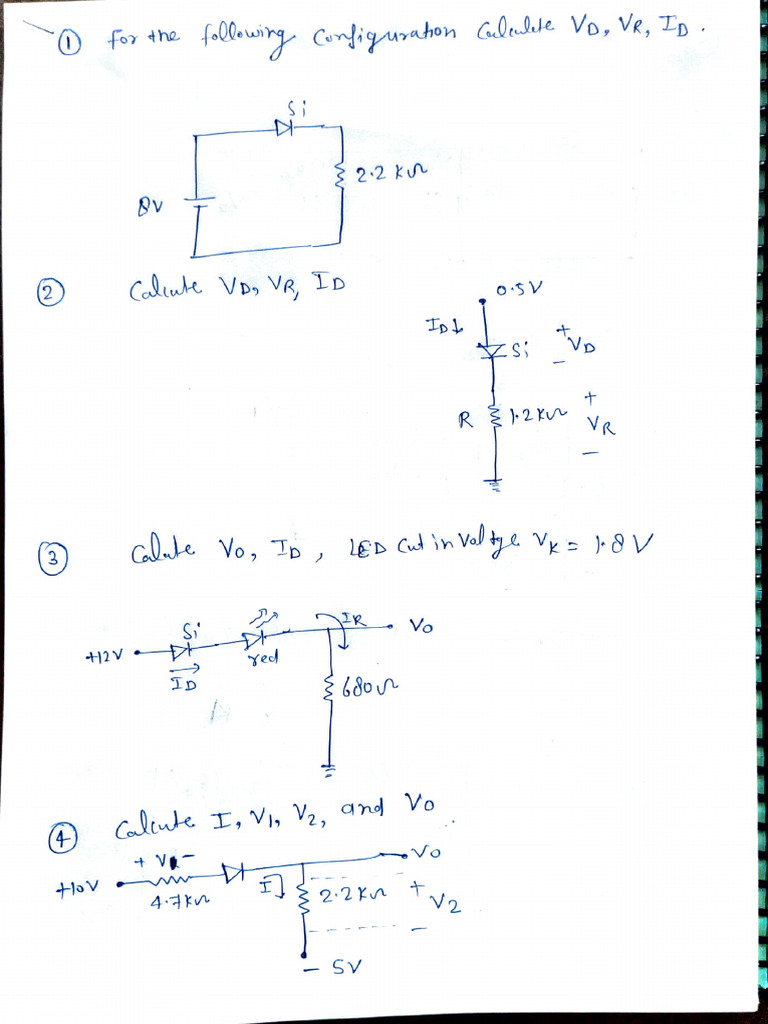 ① for the following Configuration Calculete VD, VR, ID.
Si
2.2 KΩ
8V
② Calcute VD, VR, ID
0.5V
ID↓
Si
+
VD
-
R
1.2KΩ
+
VR
-
③ Calcute Vo, ID, LED Cut in Voltge VK = 1.8V
IR
Vo
Si
+12V
red
ID
680Ω
④ Calcute I, V1, V2, and Vo
+ V1 -
Vo
+10V
4.7KΩ
I
2.2KΩ
+
V2
-
- 5V